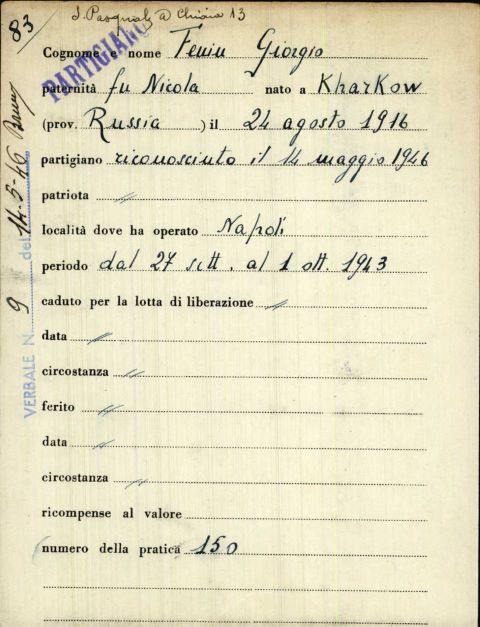 S. Pasquale a Chiaia 13
83
PARTIGIANO
Cognome e nome Fenin Giorgio
paternità fu Nicola nato a Kharkow
(prov. Russia ) il 24 agosto 1916
partigiano riconosciuto il 14 maggio 1946
patriota //
località dove ha operato Napoli
periodo dal 27 sett. al 1 ott. 1943
caduto per la lotta di liberazione //
data //
circostanza //
ferito //
data //
circostanza //
ricompense al valore
numero della pratica 150
VERBALE N. 9 del 14-5-46